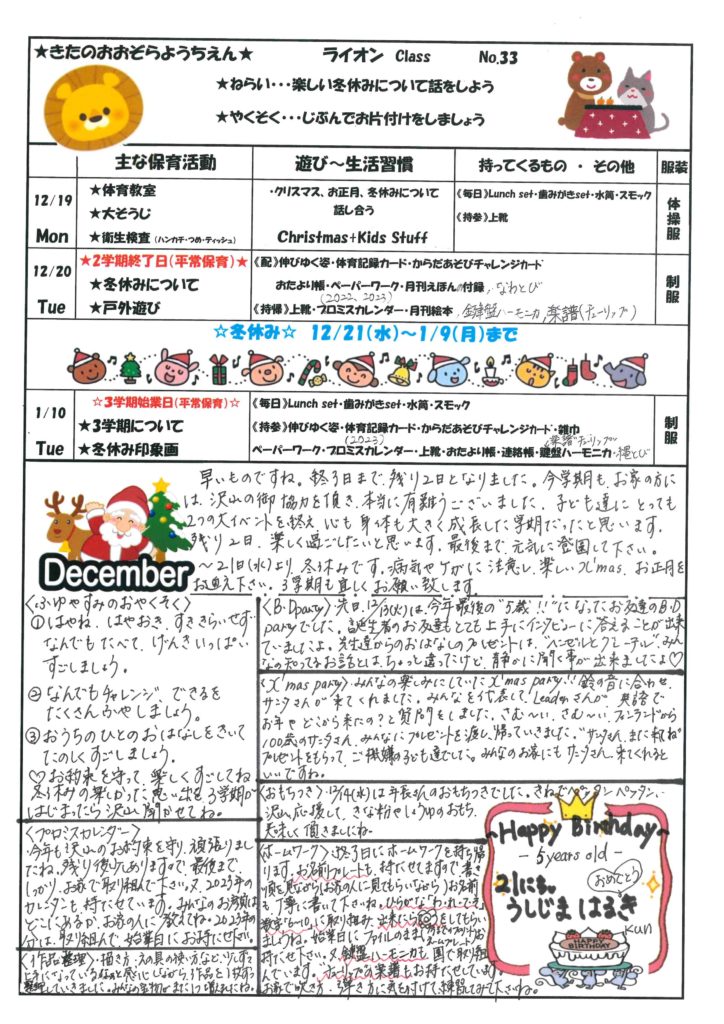 ★きたのおおぞらようちえん★ ライオン Class No.33
★ねらい・・・楽しい冬休みについて話をしよう
★やくそく・・・じぶんでお片付けをしましょう
主な保育活動 遊び～生活習慣 持ってくるもの ・ その他 服装
12/19 Mon
★体育教室
★大そうじ
★衛生検査(ハンカチ・つめ・ティッシュ)
・クリスマス、お正月、冬休みについて
話し合う
Christmas+Kids Stuff
《毎日》Lunch set・歯みがきset・水筒・スモック
《持参》上靴
体操服
12/20 Tue
★2学期終了日(平常保育)★
★冬休みについて
★戸外遊び
《配》伸びゆく姿・体育記録カード・からだあそびチャレンジカード
おたより帳・ペーパーワーク・月刊えほんの付録、なわとび
(2022、2023)
《持帰》上靴・プロミスカレンダー・月刊絵本、鍵盤ハーモニカ、楽譜(チューリップ)
制服
☆冬休み☆ 12/21(水)～1/9(月)まで
1/10 Tue
☆3学期始業日(平常保育)☆
★3学期について
★冬休み印象画
《毎日》Lunch set・歯みがきset・水筒・スモック
《持参》伸びゆく姿・体育記録カード・からだあそびチャレンジカード・雑巾
(2023) 楽譜チューリップ
ペーパーワーク・プロミスカレンダー・上靴・おたより帳・連絡帳・鍵盤ハーモニカ・縄とび
制服
December
早いものですね。終了日まで、残り2日となりました。今学期も、お家の方に
は、沢山の御協力を頂き、本当に有難うございました。子ども達にとっても
2つの大イベントを終え、心も身体も大きく成長した学期だったと思います。
残り2日、楽しく過ごしたいと思います。最後まで、元気に登園して下さい。
～21日(水)より、冬休みです。病気やケガに注意し、楽しいX'mas、お正月を
お迎え下さい。3学期も宜しくお願い致します。
〈ふゆやすみのおやくそく〉
①はやね、はやおき、すききらいせず
なんでもたべて、げんきいっぱい
すごしましょう。
②なんでもチャレンジ、できるを
たくさんふやしましょう。
③おうちのひとのおはなしをきいて
たのしくすごしましょう。
♡お約束を守って、楽しくすごしてね
冬休みの楽しかった思い出を3学期が
はじまったら沢山聞かせてね。
〈B・Dparty〉先日、12/13(火)は、今年最後の"5歳!!"になったお友達のB・D
partyでした。誕生者のお友達もとても上手にインタビューに答えることが出来
ていましたよ。先生達からのおはなしのプレゼントは、"ヘンゼルとグレーテル"みん
なの知ってるお話とは、ちょっと違ってたけど、静かに聞く事が出来ましたよ♡
〈X'mas party〉みんなの楽しみにしていたX'mas party!!鈴の音に合わせ、
サンタさんが来てくれました。みんなを代表して、Leaderさんが 英語で
お年やどこから来たの?と質問をしました。さむ～い、さむ～い、フィンランドから
100歳のサンタさん、みんなにプレゼントを渡し、帰っていきました。"サンタさん、また来てね"
プレゼントをもらって、ご機嫌の子ども達でした。みんなのお家にもサンタさん、来てくれると
いいですね。
〈おもちつき〉12/14(水)は年長さんのおもちつきでした。きねでペッタンペッタン、
沢山応援して、きな粉やしょうゆのおもち、
美味しく頂きましたね。
〈プロミスカレンダー〉
今年も沢山のお約束を守り、頑張りまし
たね。残り僅か有りますので最後まで、
しっかり、お家で取り組んで下さい。又、2023年の
カレンダーも持たせています。みんなのお顔は
どこにあるか、お家の人に教えてね。2023年の
分は、取り組んで、始業日にお持ち下さい。
〈ホームワーク〉終了日にホームワークを持ち帰
ります。お名前プレートも、持たせてますので、書き
順を見ながら(お家の人に見てもらいながら)お名前
も丁寧に書いて下さいね。
しましょうね。始業日にファイルのまま
お持ち下さい。又、鍵盤ハーモニカも園で取り組
んでいます。チューリップの楽譜もお持たせしています。
お家で吹き方、弾き方に気を付けて、練習してみて下さいね。
〈作品整理〉・描き方・絵の具の使い方など、少しずつ
上手になっているなぁと感じながら、作品を1枚ずつ
整理していきました。みんなの宝物がまた1つ増えましたね。
～Happy Birthday～
- 5 years old -
おめでとう
21にち
うしじま はるき
kun
HAPPY BIRTHDAY